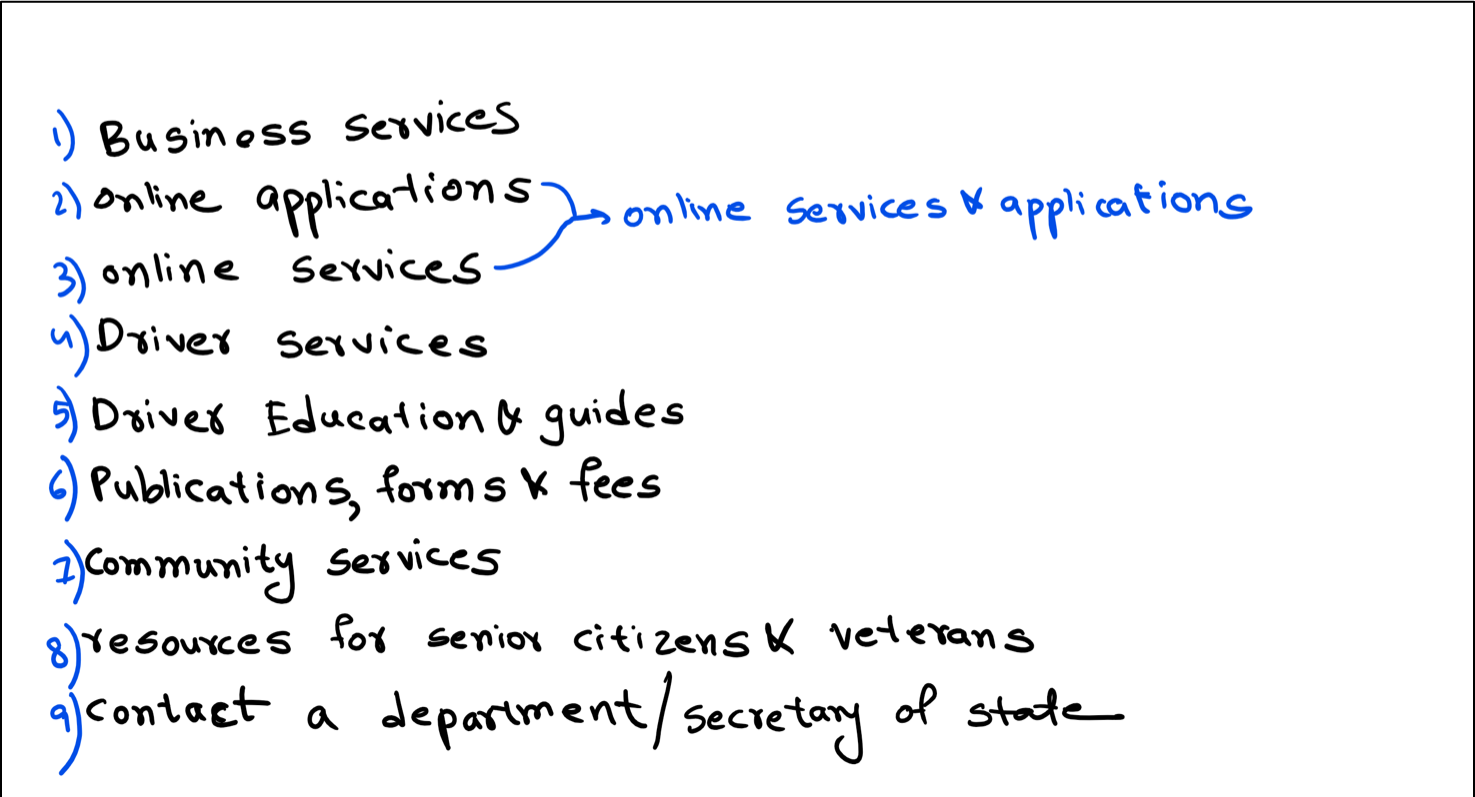 1) Business services
2) online applications
online services & applications
3) online services
4) Driver services
5) Driver Education & guides
6) Publications, forms & fees
7) Community services
8) resources for senior citizens & veterans
9) contact a department/secretary of state